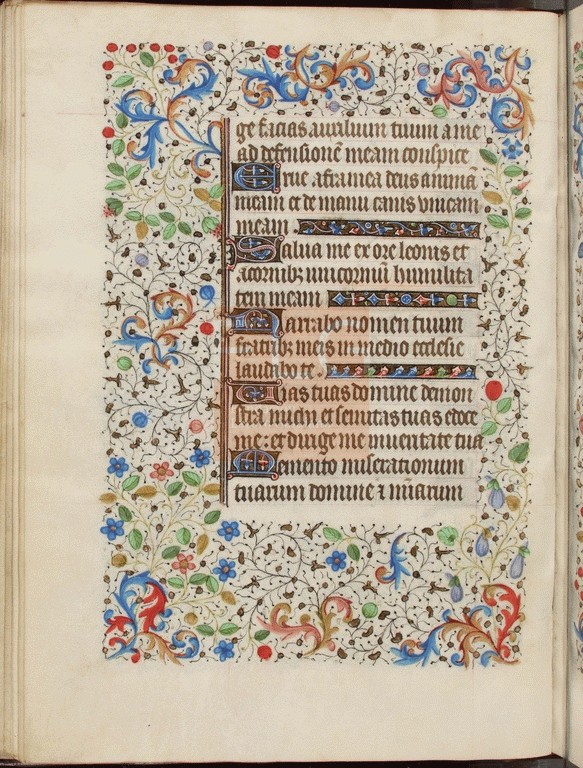 ge facias auxilium tuum a me
ad defensionē meam conspice
Erue a framea deus animā
meam et de manu canis vnicam
meam
Salua me ex ore leonis et
a cornibꝫ unicorniū humilita
tem meam
Narrabo nomen tuum
fratribꝫ meis in medio ecclesie
laudabo te
Uias tuas domine demon
stra michi et semitas tuas edoce
me: et dirige me in ueritate tua
Memento miserationum
tuarum domine ⁊ mīarum